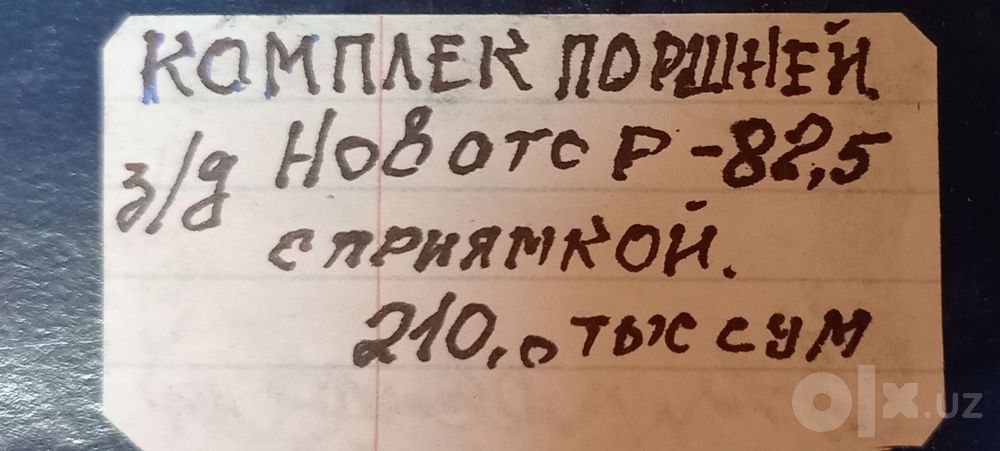 КОМПЛЕК ПОРШНЕЙ.
з/д Новотс Р-82,5
с приямкой.
210,0 тыс сум
olx.uz